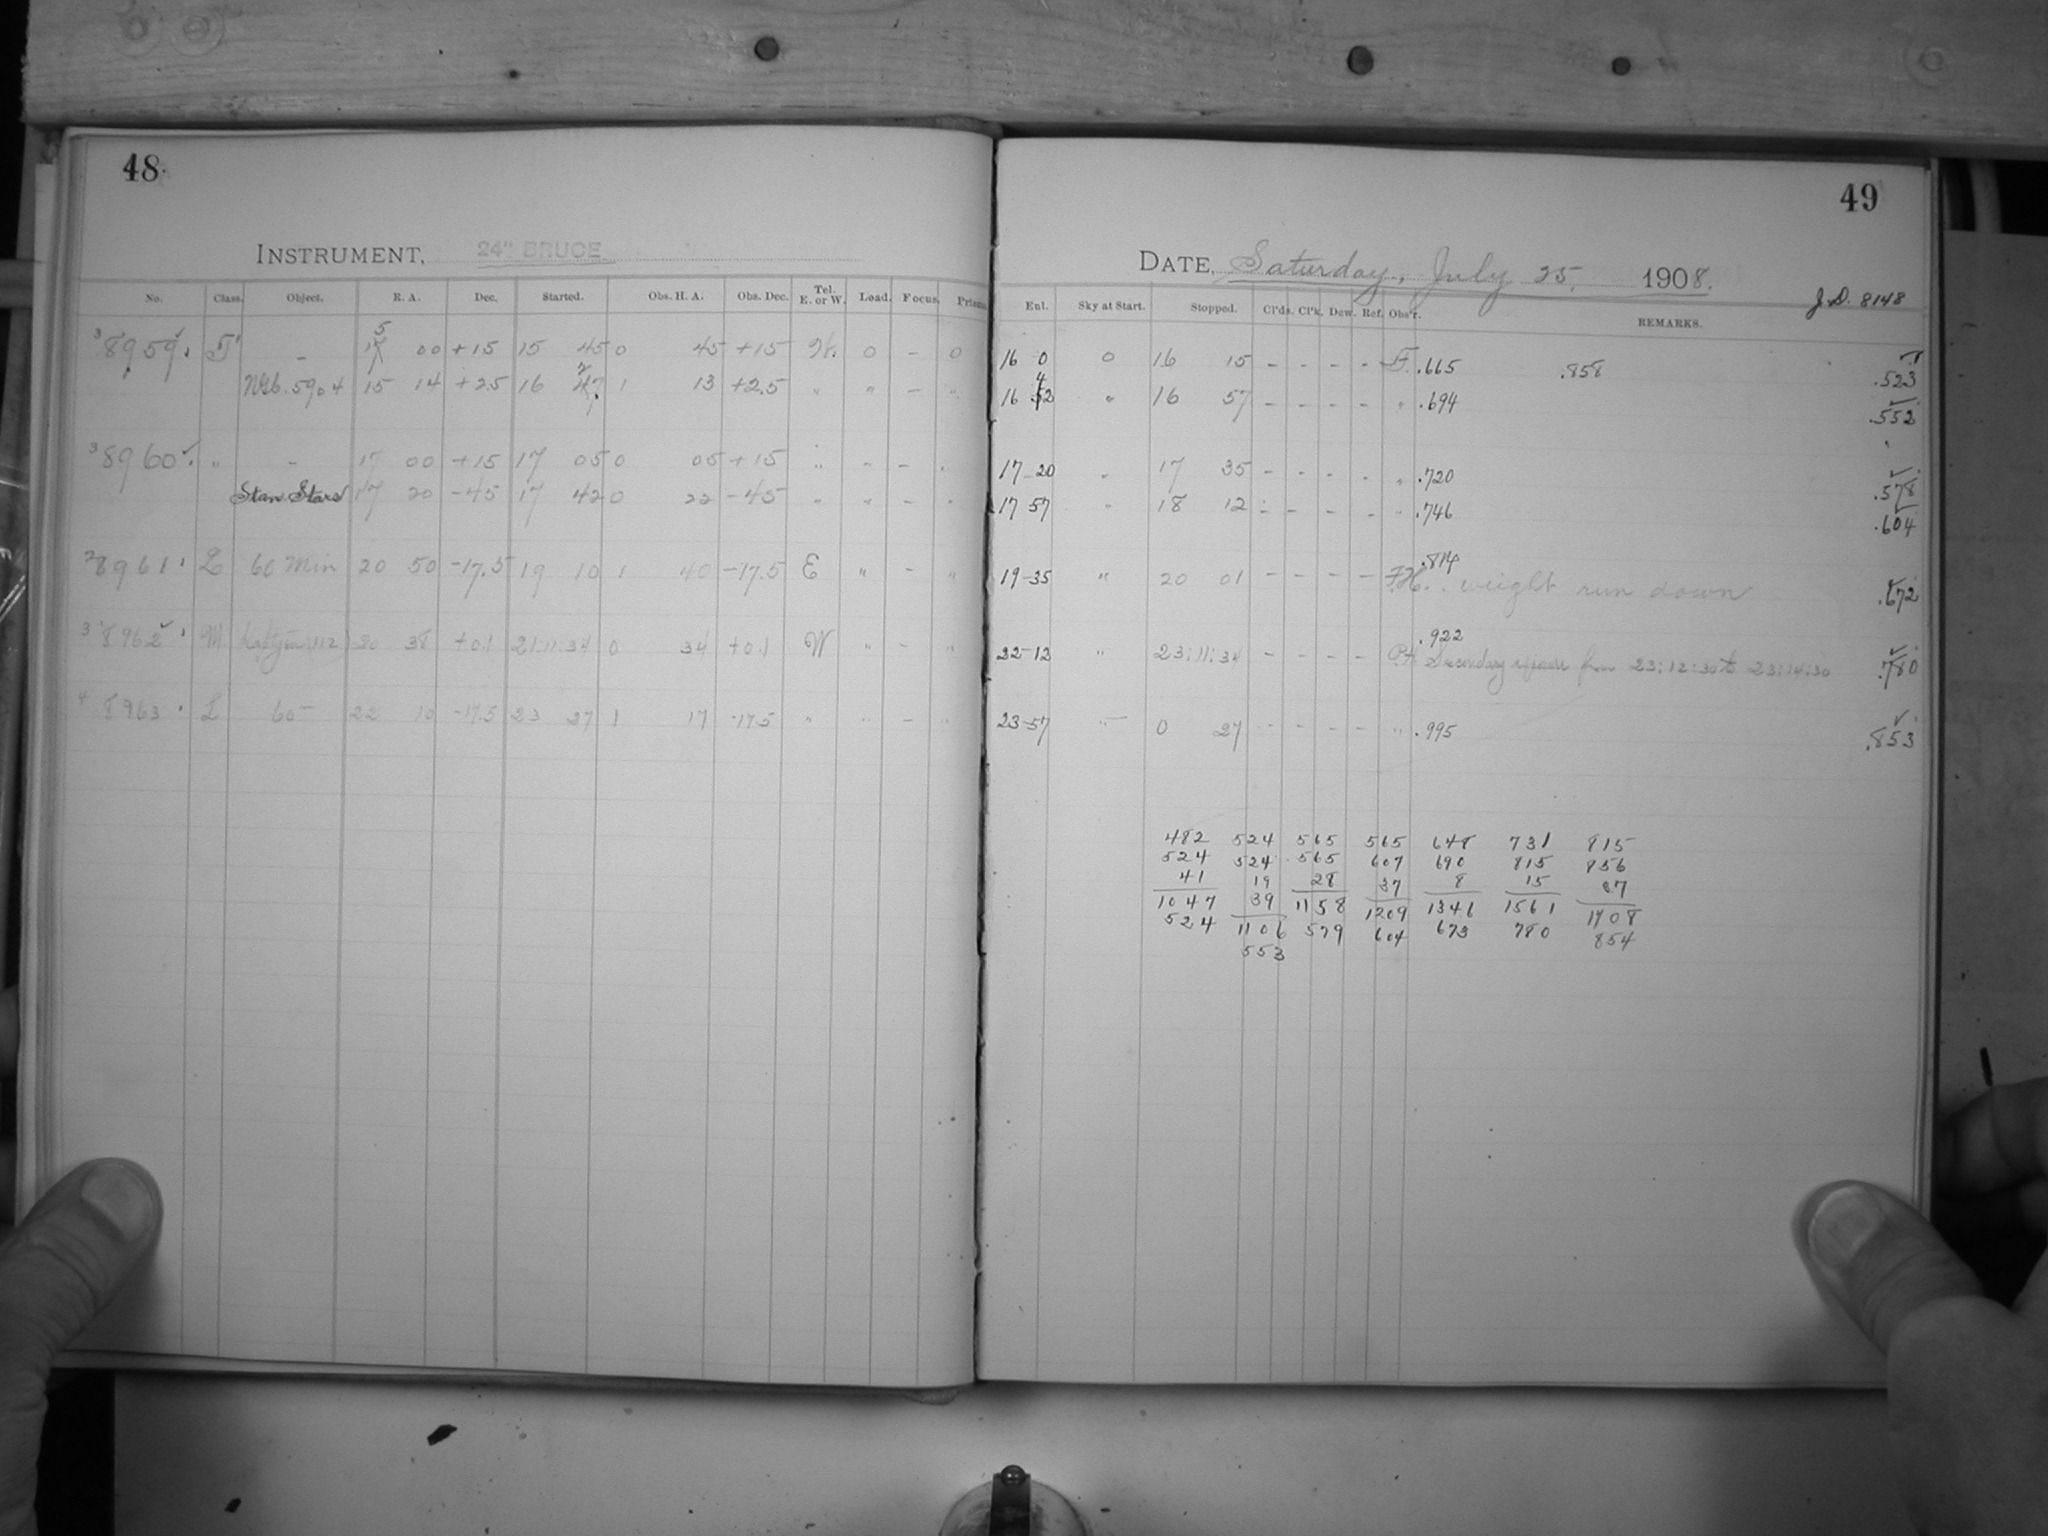 48
INSTRUMENT, 24" BRUCE
No. Class. Object. R. A. Dec. Started. Obs. H. A. Obs. Dec. Tel. E. or W. Load. Focus. Prisms
3 8959 - 5 00 +15 15 45 0 45 +15 W. 0 - 0
5904 15 14 +2.5 16 27 1 13 +2.5 " " - "
3 8960 " - 17 00 +15 17 05 0 05 +15 " " - "
Stan. Stars 17 20 -45 17 42 0 22 -45 " " - "
2 8961 L 60 Min 20 50 -17.5 19 10 1 40 -17.5 E " - "
3 8962 M 20 38 +0.1 21:11:34 0 34 +0.1 W " - "
4 8963 L 60 22 10 -17.5 23 27 1 17 -17.5 " " - "
49
DATE, Saturday, July 25, 1908.
J.D. 8148
Ent. Sky at Start. Stopped. Cl'ds. Cl'k. Dew. Ref. Obs'r. REMARKS.
16 0 0 16 15 - - - - F. .665 .858 .523
16 42 " 16 57 - - - - " .694 .552
17-20 " 17 35 - - - - " .720 .578
17 57 " 18 12 - - - - " .746 .604
19-35 " 20 01 - - - - .814 weight run down .672
22-12 " 23:11:34 - - - - .922 Secondary exposure from 23:12:30 to 23:14:30 .780
23-57 " 0 27 - - - - " .995 .853
482 524 565 565 648 731 815
524 524 565 607 690 815 856
41 19 28 37 8 15 37
1047 39 1158 1209 1346 1561 1708
524 1106 579 604 673 780 854
553